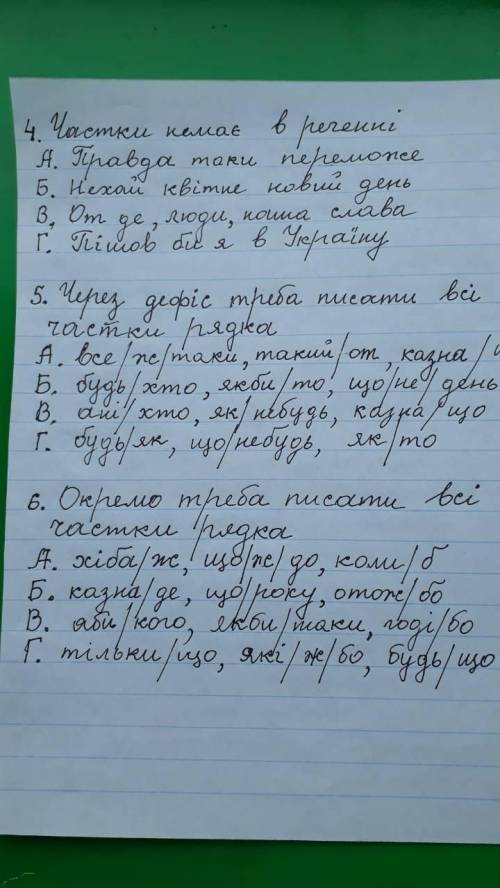 4. Частки немає в реченні
А. Правда таки переможе
Б. Нехай квітне новий день
В, От де, люди, наша слава
Г. Пішов би я в Україну
5. Через дефіс треба писати всі
частки рядка
А. все/ж/таки, такий/от, казна/
Б. будь/хто, якби/то, що/не/день
В. ані/хто, як/небудь, казна/що
Г. будь/як, що/небудь, як/то
6. Окремо треба писати всі
частки рядка
А. хіба/ж, що/ж/до, коли/б
Б. казна/де, що/року, отож/бо
В. аби/кого, якби/таки, годі/бо
Г. тільки/що, які/ж/бо, будь/що